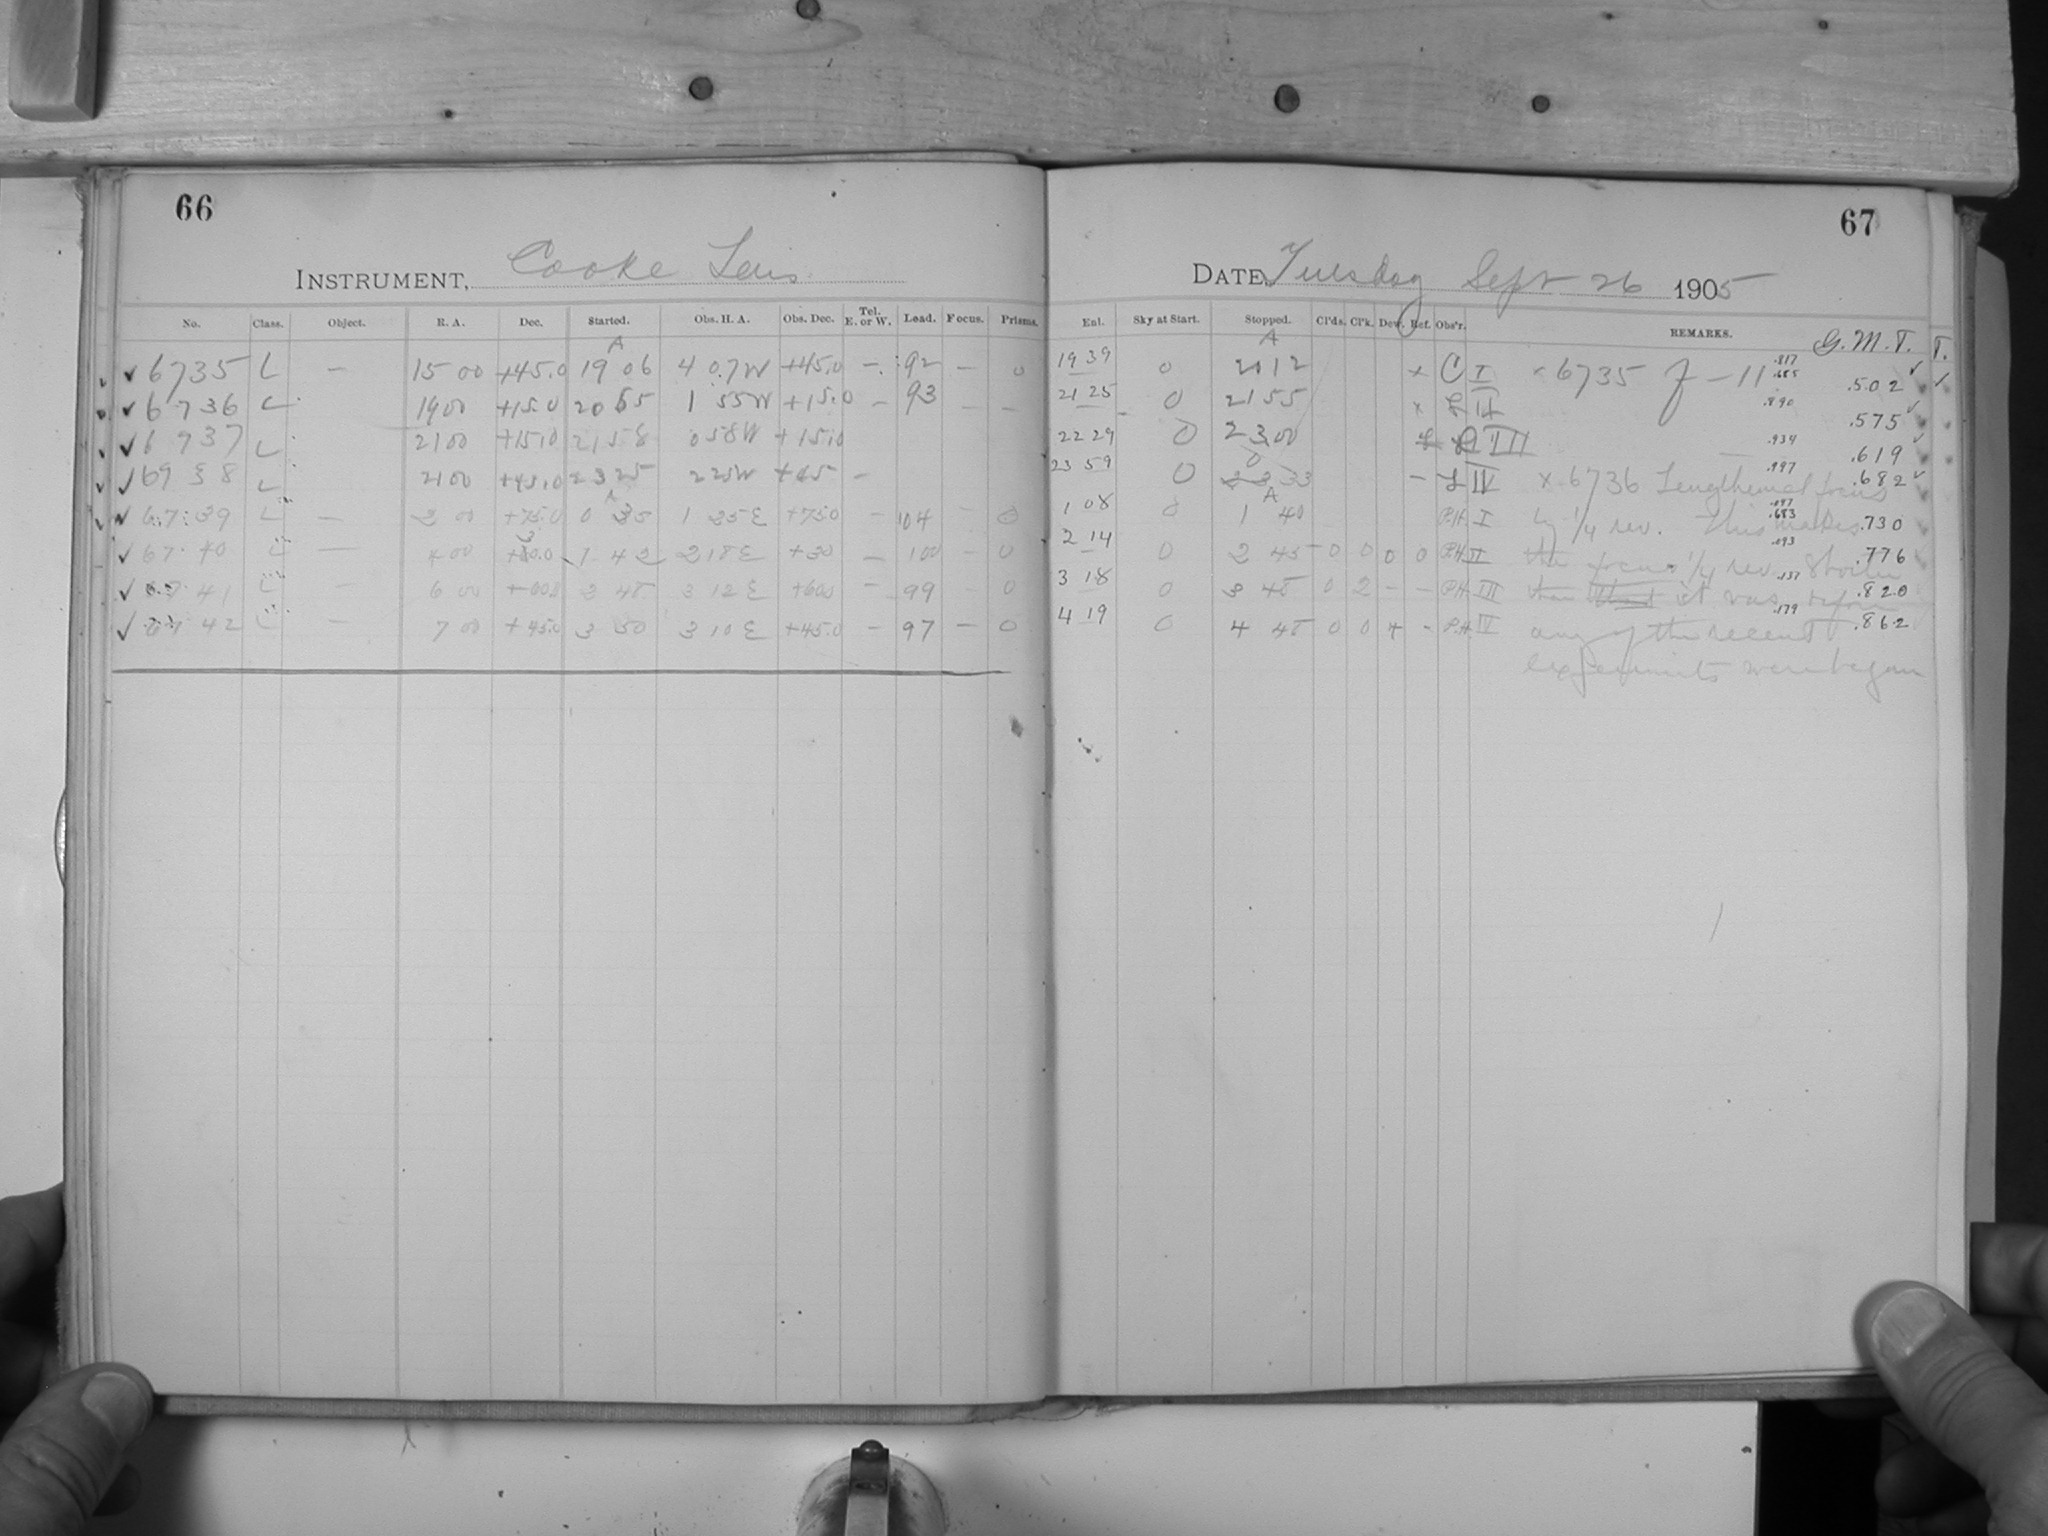 66
67
INSTRUMENT, Cooke Lens
DATE, Tuesday Sept 26 1905
No. Class. Object. R. A. Dec. Started. Obs. H. A. Obs. Dec. Tel. E. or W. Lead. Focus. Prisms.
Enl. Sky at Start. Stopped. Cl'ds. Cl'k. Dew. Ref. Obs'r. REMARKS. G. M. T. T.
A
A
✓ 6735 L — 15 00 +45.0 19 06 4 07W +45.0 — 92 — 0
19 39 0 2012 × C I × 6735 f — 11 .817 .685 .502 ✓
✓ 6736 L 1900 +15.0 20 55 1 55W +15.0 — 93 — —
21 25 0 2155 × L II .890 .575 ✓
✓ 6737 L 2100 +15.0 2158 0 58W +15.0
22 29 0 2300 III .939 .619 ✓
✓ 6738 L 2100 +45.0 2325 2 25W +45 —
23 59 0 33 — L IV × 6736 Lengthened focus .997 .682 ✓
✓ 6739 L — +75.0 0 35 1 25E +75.0 — 104 — 0
1 08 0 A 1 40 P.H. I by 1/4 rev. This makes .683 .730
✓ 6740 L — 4 00 1 42 2 18E +30 — 100 — 0
2 14 0 2 45 0 0 0 0 P.H. II the focus 1/4 rev. shorter .093 .776
✓ 6741 L — 6 00 3 12E +600 — 99 0
3 18 0 3 48 0 2 — — P.H. III than it was before .137 .820
✓ 6742 L — 7 00 +45.0 3 50 3 10E +45.0 — 97 — 0
4 19 0 4 48 0 0 + - P.H. IV any of the recent .179 .862
experiments were began